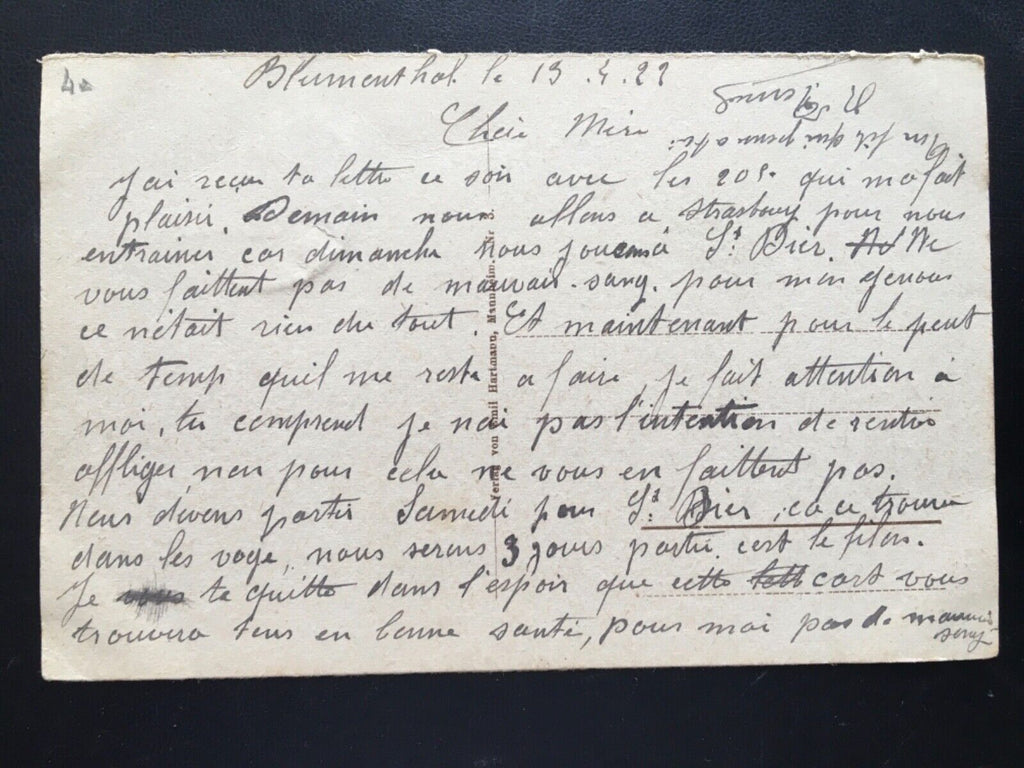 4
Blumenthal le 13.4.22
Cheie Mère
J'ai reçue ta lettre ce soir avec les 20f. qui m'a fait
plaisir. Demain nous allons a Strasbourg pour nous
entrainer car dimanche nous joueronsà St Dier. Ne
vous faittent pas de mauvais-sang. pour mon genous
ce n'était rien du tout. Et maintenant pour le peut
de temp quil me reste a faire, je fait attention à
moi, tu comprend je nai pas l'intention de rentrir
affliger non pour cela ne vous en faittent pas.
Nous devons partir Samedi pour St Dier, ca ce trouve
dans les voge, nous serons 3 jours partir. cest le filon.
Je vous te quitte dans l'espoir que cette lett cart vous
trouvera tous en bonne santé, pour moi pas de mauvais
sang
Un fils qui pense a toi
Verlag von Emil Hartmann, Mannheim. Nr